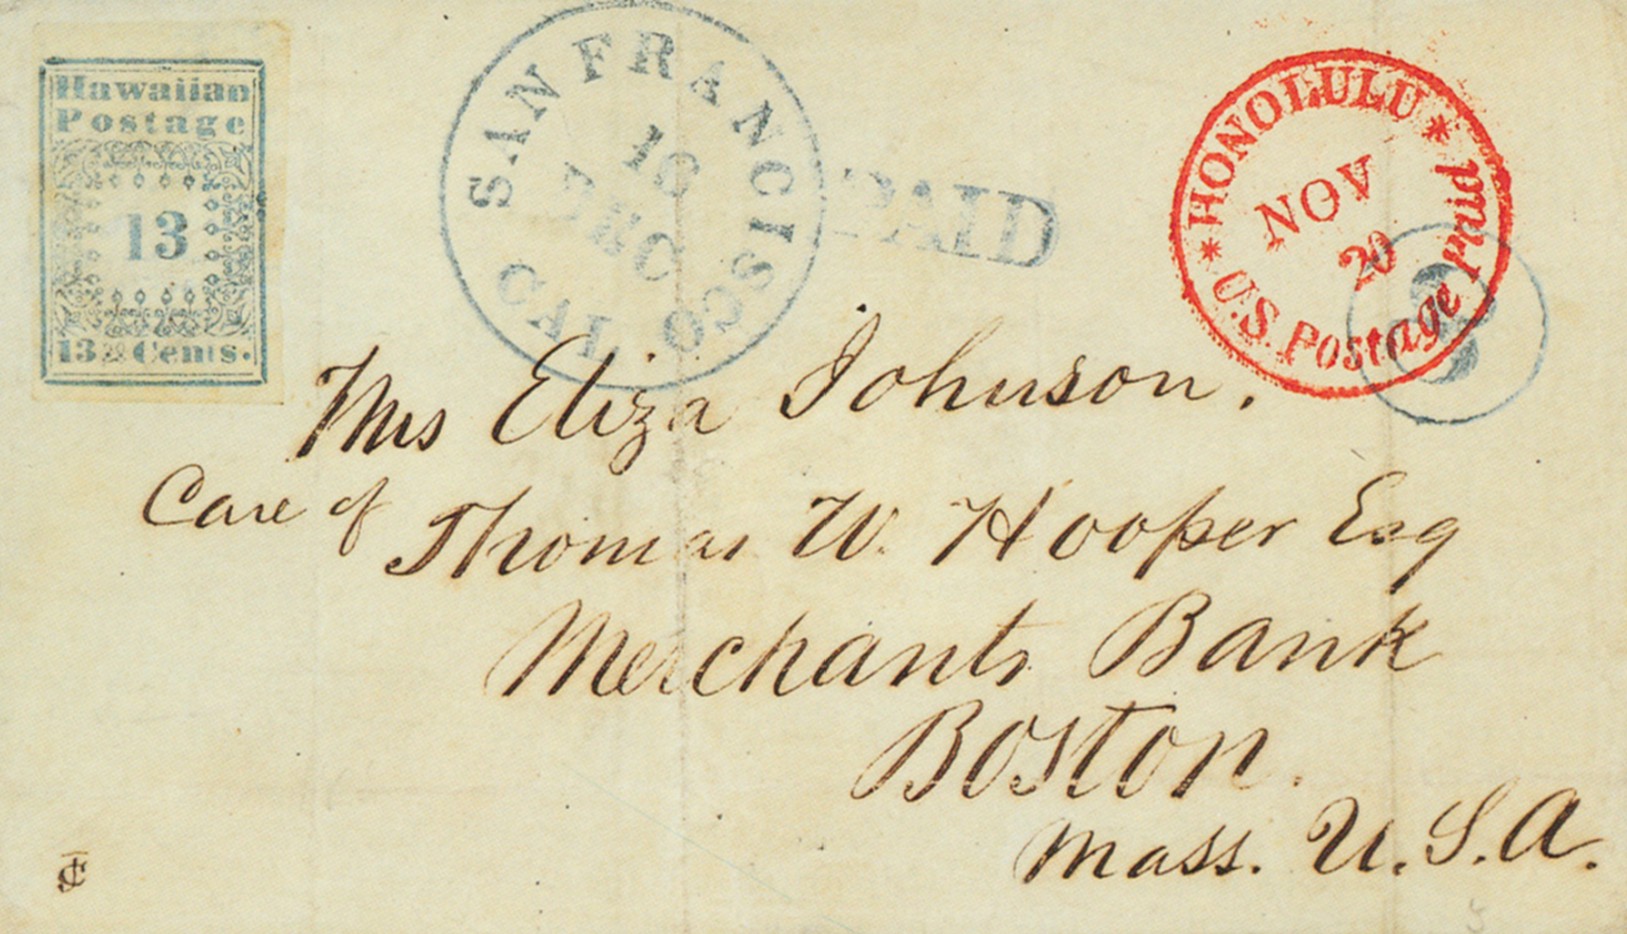 Hawaiian
Postage
13
13 Cents.
SAN FRANCISCO CAL
16
DEC
PAID
HONOLULU
U.S. Postage Paid
NOV
20
8
Mrs Eliza Johnson.
Care of Thomas W. Hooper Esq
Merchants Bank
Boston.
Mass. U.S.A.